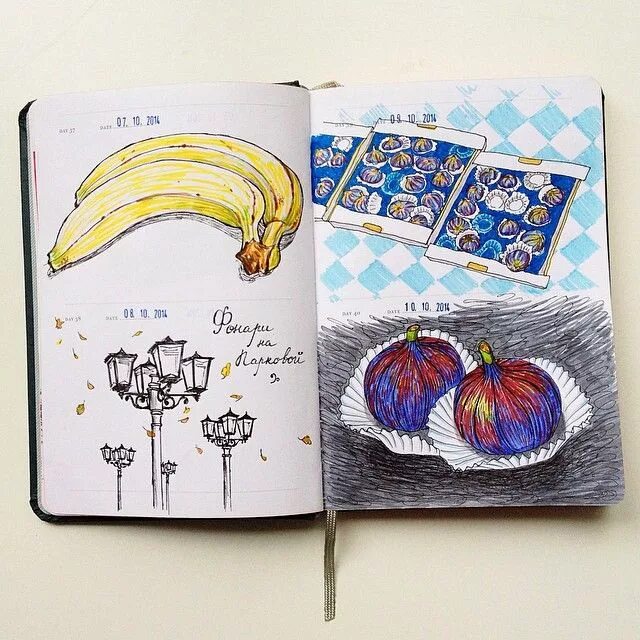 DAY 37 DATE 07. 10. 2014
DAY 38 DATE 08. 10. 2014
Фонари
на
Парковой
DATE 09. 10. 2014
DAY 40 DATE 10. 10. 2014